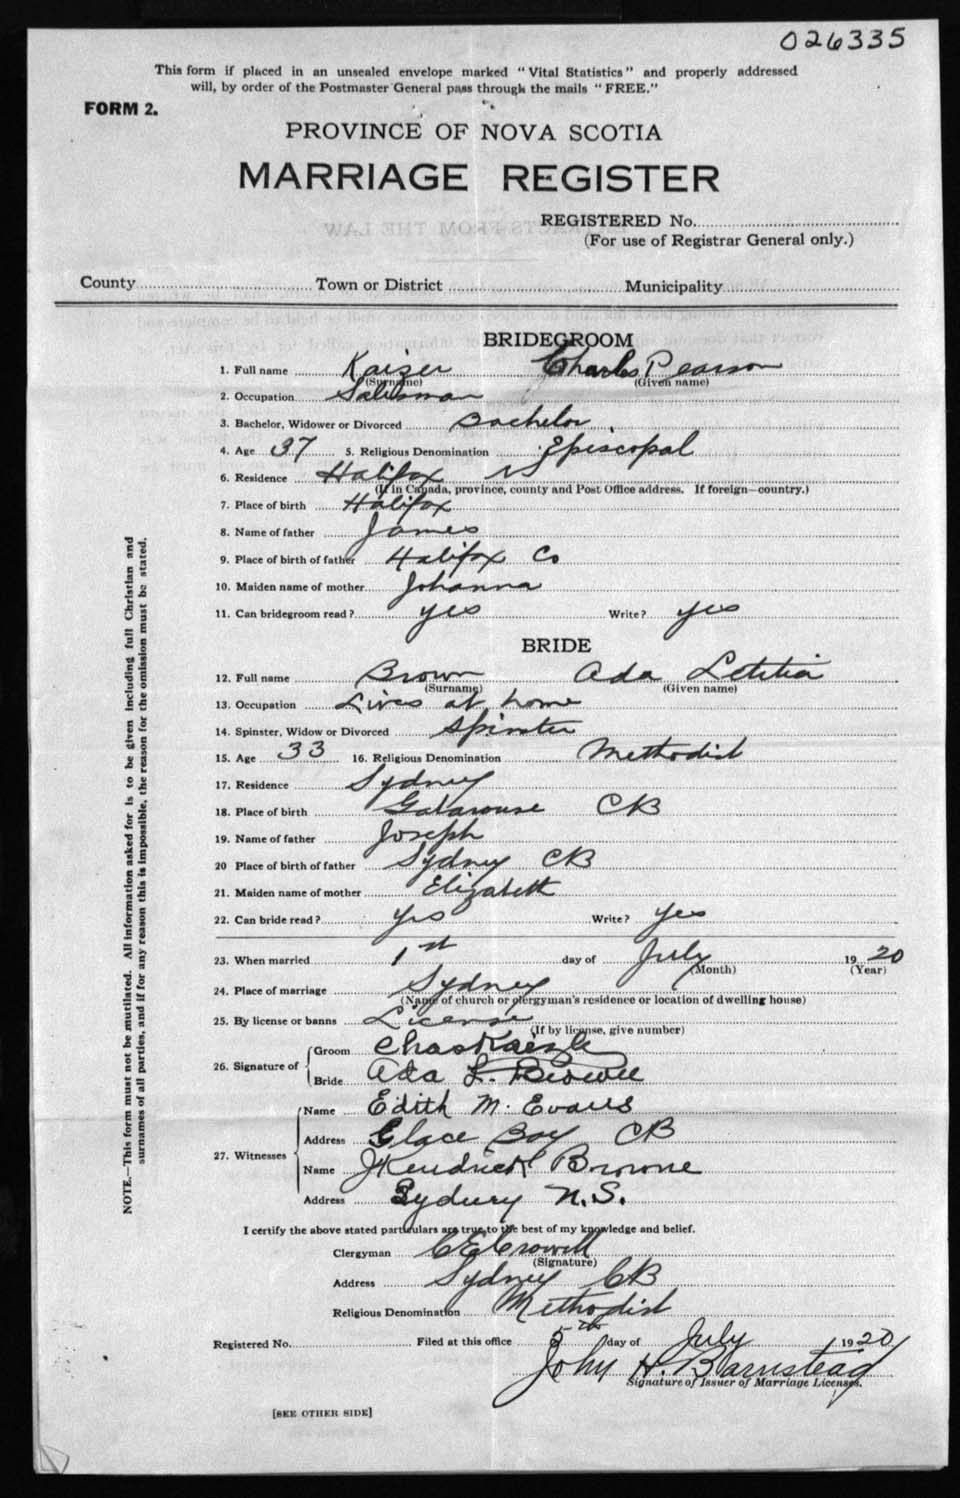 026335
This form if placed in an unsealed envelope marked "Vital Statistics" and properly addressed
will, by order of the Postmaster General pass through the mails "FREE."
FORM 2.
PROVINCE OF NOVA SCOTIA
MARRIAGE REGISTER
REGISTERED No.
(For use of Registrar General only.)
County Town or District Municipality
BRIDEGROOM
1. Full name Kaizer Charles Pearson
(Surname) (Given name)
2. Occupation Salesman
3. Bachelor, Widower or Divorced Bachelor
4. Age 37 5. Religious Denomination Episcopal
6. Residence Halifax NS
(If in Canada, province, county and Post Office address. If foreign—country.)
7. Place of birth Halifax
8. Name of father James
9. Place of birth of father Halifax Co
10. Maiden name of mother Johanna
11. Can bridegroom read? yes Write? yes
BRIDE
12. Full name Brown Ada Letitia
(Surname) (Given name)
13. Occupation Lives at home
14. Spinster, Widow or Divorced Spinster
15. Age 33 16. Religious Denomination Methodist
17. Residence Sydney
18. Place of birth Gabarouse CB
19. Name of father Joseph
20 Place of birth of father Sydney CB
21. Maiden name of mother Elizabeth
22. Can bride read? yes Write? yes
23. When married 1st day of July 1920
(Month) (Year)
24. Place of marriage Sydney
(Name of church or clergyman's residence or location of dwelling house)
25. By license or banns License
(If by license, give number)
26. Signature of Groom Chas
Bride Ada L. Browne
27. Witnesses Name Edith M. Evans
Address Glace Bay CB
Name J Kendrick Browne
Address Sydney N.S.
I certify the above stated particulars are true to the best of my knowledge and belief.
Clergyman C E Crowell
(Signature)
Address Sydney CB
Religious Denomination Methodist
Registered No. Filed at this office 5th day of July 1920
John H. Barnstead
Signature of Issuer of Marriage Licenses.
[SEE OTHER SIDE]
NOTE.—This form must not be mutilated. All information asked for is to be given including full Christian and
surnames of all parties, and if for any reason this is impossible, the reason for the omission must be stated.